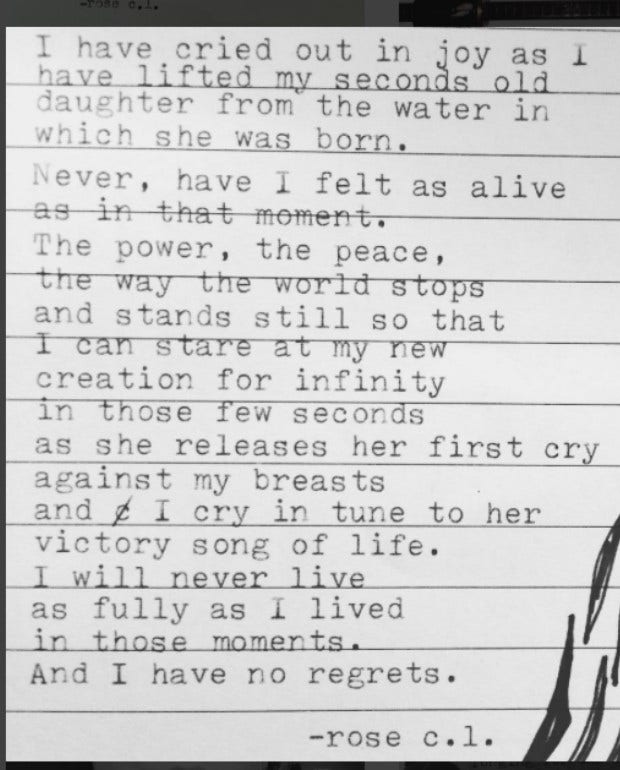 -rose c.l.
I have cried out in joy as I
have lifted my seconds old
daughter from the water in
which she was born.
Never, have I felt as alive
as in that moment.
The power, the peace,
the way the world stops
and stands still so that
I can stare at my new
creation for infinity
in those few seconds
as she releases her first cry
against my breasts
and ȼ I cry in tune to her
victory song of life.
I will never live
as fully as I lived
in those moments.
And I have no regrets.
-rose c.l.